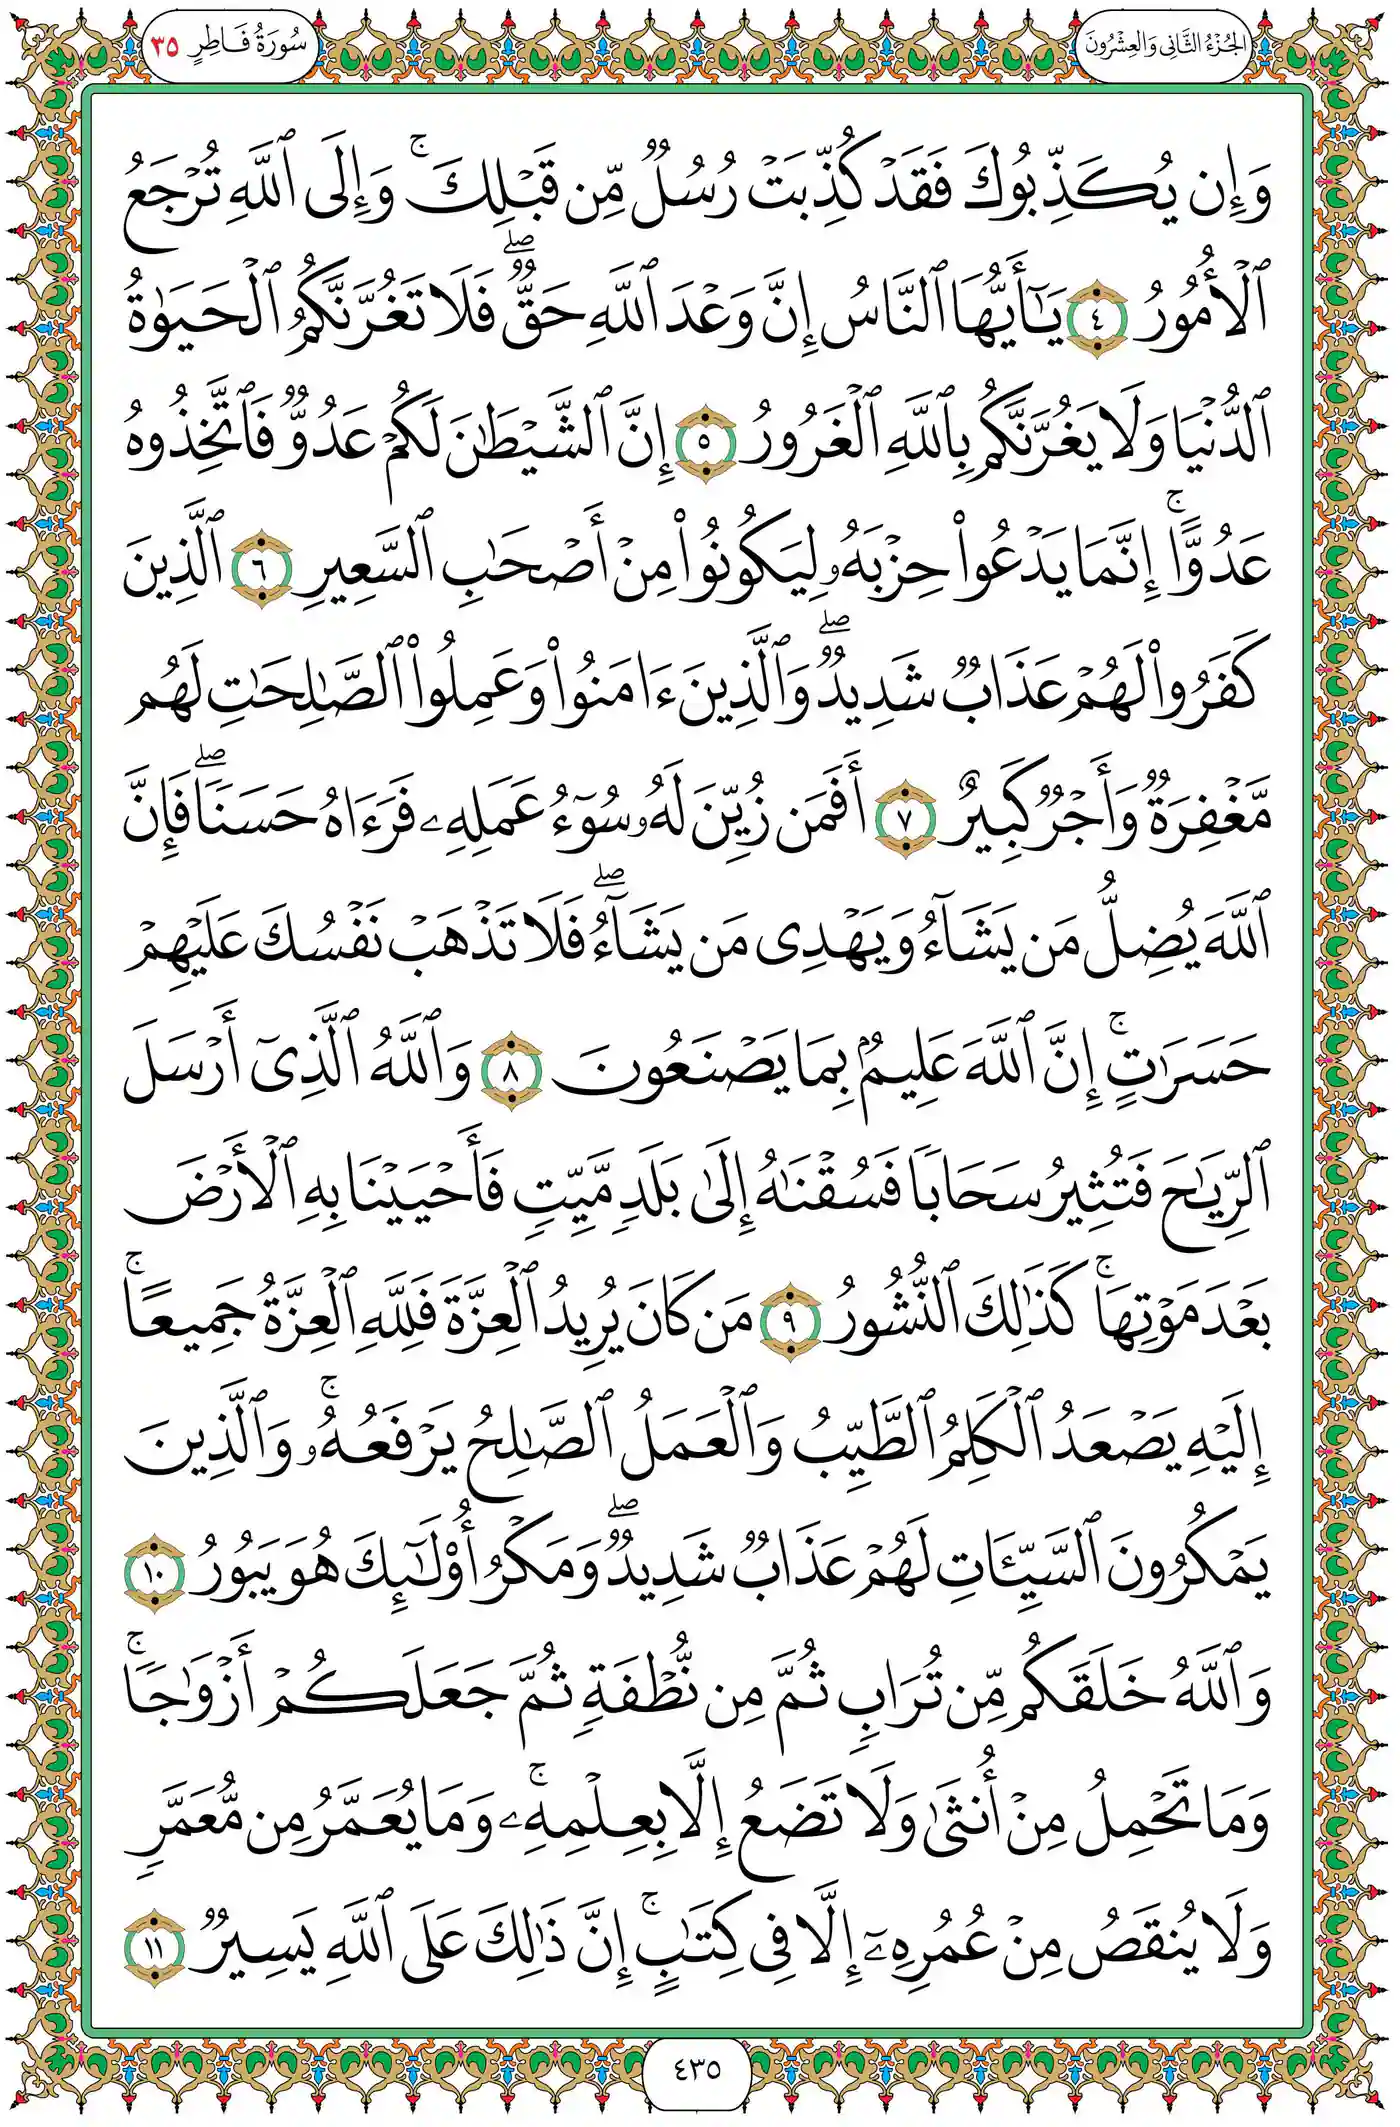 الجُزْءُ الثَّانِي وَالعِشْرُونَ
سُورَةُ فَاطِرٍ ٣٥
وَإِن يُكَذِّبُوكَ فَقَدْ كُذِّبَتْ رُسُلٌ مِّن قَبْلِكَ ۚ وَإِلَى ٱللَّهِ تُرْجَعُ
ٱلْأُمُورُ ٤ يَـٰٓأَيُّهَا ٱلنَّاسُ إِنَّ وَعْدَ ٱللَّهِ حَقٌّ ۖ فَلَا تَغُرَّنَّكُمُ ٱلْحَيَوٰةُ
ٱلدُّنْيَا وَلَا يَغُرَّنَّكُم بِٱللَّهِ ٱلْغَرُورُ ٥ إِنَّ ٱلشَّيْطَـٰنَ لَكُمْ عَدُوٌّ فَٱتَّخِذُوهُ
عَدُوًّا ۚ إِنَّمَا يَدْعُوا۟ حِزْبَهُۥ لِيَكُونُوا۟ مِنْ أَصْحَـٰبِ ٱلسَّعِيرِ ٦ ٱلَّذِينَ
كَفَرُوا۟ لَهُمْ عَذَابٌ شَدِيدٌ ۖ وَٱلَّذِينَ ءَامَنُوا۟ وَعَمِلُوا۟ ٱلصَّـٰلِحَـٰتِ لَهُم
مَّغْفِرَةٌ وَأَجْرٌ كَبِيرٌ ٧ أَفَمَن زُيِّنَ لَهُۥ سُوٓءُ عَمَلِهِۦ فَرَءَاهُ حَسَنًا ۖ فَإِنَّ
ٱللَّهَ يُضِلُّ مَن يَشَآءُ وَيَهْدِى مَن يَشَآءُ ۖ فَلَا تَذْهَبْ نَفْسُكَ عَلَيْهِمْ
حَسَرَٰتٍ ۚ إِنَّ ٱللَّهَ عَلِيمٌۢ بِمَا يَصْنَعُونَ ٨ وَٱللَّهُ ٱلَّذِىٓ أَرْسَلَ
ٱلرِّيَـٰحَ فَتُثِيرُ سَحَابًا فَسُقْنَـٰهُ إِلَىٰ بَلَدٍ مَّيِّتٍ فَأَحْيَيْنَا بِهِ ٱلْأَرْضَ
بَعْدَ مَوْتِهَا ۚ كَذَٰلِكَ ٱلنُّشُورُ ٩ مَن كَانَ يُرِيدُ ٱلْعِزَّةَ فَلِلَّهِ ٱلْعِزَّةُ جَمِيعًا ۚ
إِلَيْهِ يَصْعَدُ ٱلْكَلِمُ ٱلطَّيِّبُ وَٱلْعَمَلُ ٱلصَّـٰلِحُ يَرْفَعُهُۥ ۚ وَٱلَّذِينَ
يَمْكُرُونَ ٱلسَّيِّـَٔاتِ لَهُمْ عَذَابٌ شَدِيدٌ ۖ وَمَكْرُ أُو۟لَـٰٓئِكَ هُوَ يَبُورُ ١٠
وَٱللَّهُ خَلَقَكُم مِّن تُرَابٍ ثُمَّ مِن نُّطْفَةٍ ثُمَّ جَعَلَكُمْ أَزْوَٰجًا ۚ
وَمَا تَحْمِلُ مِنْ أُنثَىٰ وَلَا تَضَعُ إِلَّا بِعِلْمِهِۦ ۚ وَمَا يُعَمَّرُ مِن مُّعَمَّرٍ
وَلَا يُنقَصُ مِنْ عُمُرِهِۦٓ إِلَّا فِى كِتَـٰبٍ ۚ إِنَّ ذَٰلِكَ عَلَى ٱللَّهِ يَسِيرٌ ١١
٤٣٥